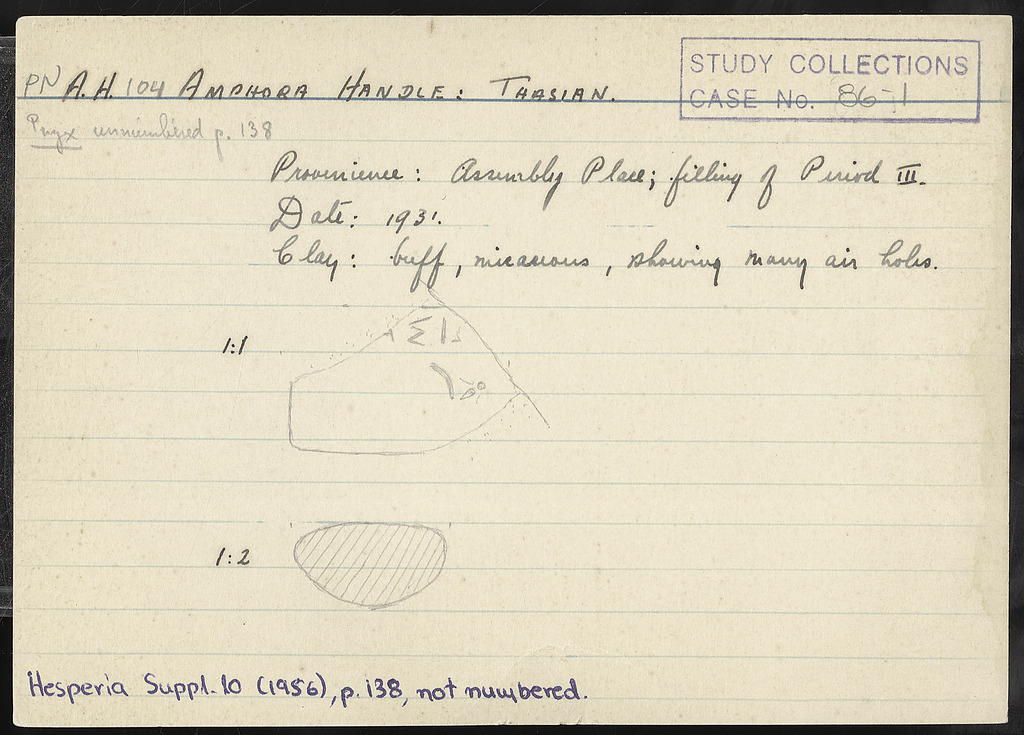 STUDY COLLECTIONS
CASE No. 86-1
PN A.H. 104 AMPHORA HANDLE: THASIAN.
Pnyx unnumbered p. 138
Provenience: Assembly Place; filling of Period III.
Date: 1931.
Clay: buff, micaceous, showing many air holes.
1:1
Σ
1:2
Hesperia Suppl. 10 (1956), p. 138, not numbered.